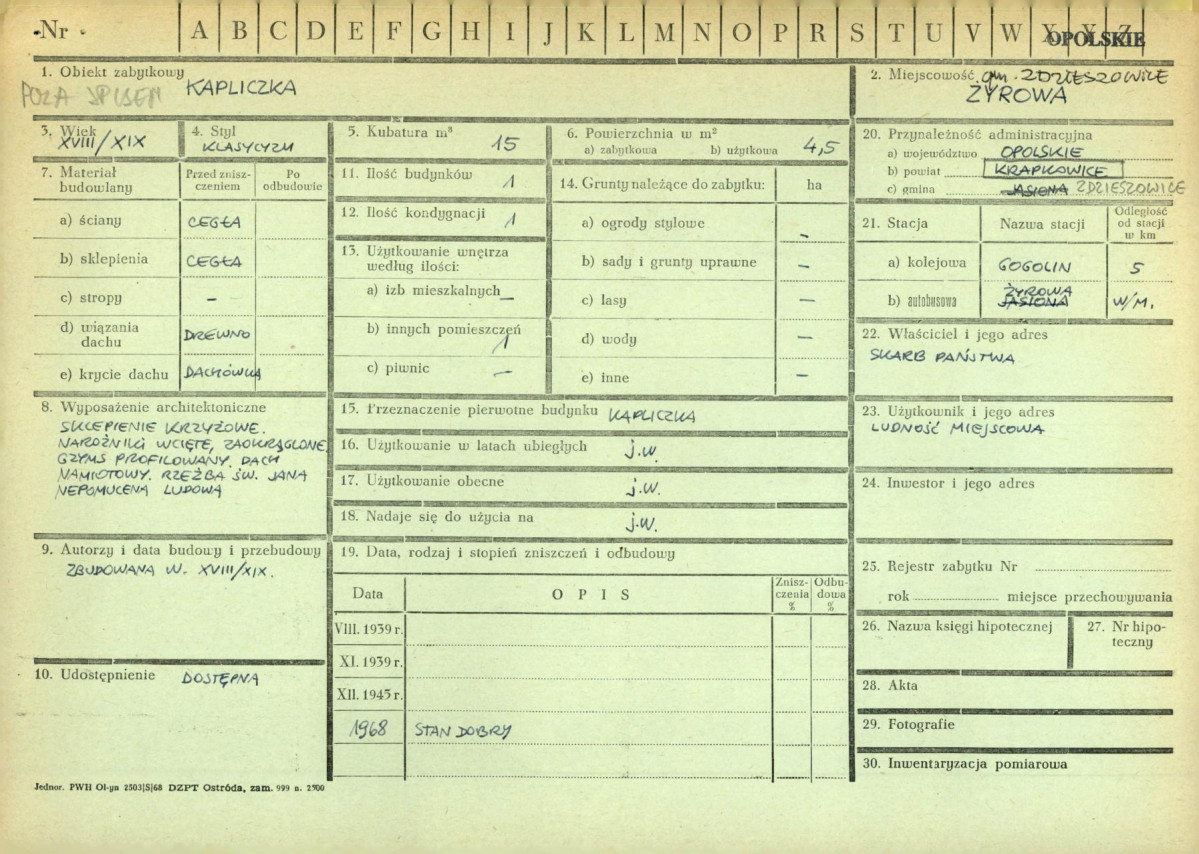 Nr A B C D E F G H I J K L M N O P R S T U V W X Y Z
OPOLSKIE
1. Obiekt zabytkowy
POZA SPISEM
KAPLICZKA
2. Miejscowość gm. ZDZIESZOWICE
ŻYROWA
3. Wiek
XVIII/XIX
4. Styl
KLASYCYZM
5. Kubatura m³
15
6. Powierzchnia w m²
a) zabytkowa b) użytkowa 4,5
7. Materiał budowlany
Przed zniszczeniem
Po odbudowie
a) ściany CEGŁA
b) sklepienia CEGŁA
c) stropy –
d) wiązania dachu DREWNO
e) krycie dachu DACHÓWKA
8. Wyposażenie architektoniczne
SKLEPIENIE KRZYŻOWE.
NAROŻNIKI WCIĘTE, ZAOKRĄGLONE,
GZYMS PROFILOWANY. DACH
NAMIOTOWY. RZEŹBA ŚW. JANA
NEPOMUCENA LUDOWA
9. Autorzy i data budowy i przebudowy
ZBUDOWANA W. XVIII/XIX.
10. Udostępnienie DOSTĘPNA
11. Ilość budynków 1
12. Ilość kondygnacji 1
13. Użytkowanie wnętrza
według ilości:
a) izb mieszkalnych –
b) innych pomieszczeń 1
c) piwnic –
14. Grunty należące do zabytku: ha
a) ogrody stylowe –
b) sady i grunty uprawne –
c) lasy –
d) wody –
e) inne –
15. Przeznaczenie pierwotne budynku KAPLICZKA
16. Użytkowanie w latach ubiegłych j.w.
17. Użytkowanie obecne j.w.
18. Nadaje się do użycia na j.w.
19. Data, rodzaj i stopień zniszczeń i odbudowy
Data OPIS Zniszczenia % Odbudowa %
VIII. 1939 r.
XI. 1939 r.
XII. 1945 r.
1968 STAN DOBRY
20. Przynależność administracyjna
a) województwo OPOLSKIE
b) powiat KRAPKOWICE
c) gmina JASIONA ZDZIESZOWICE
21. Stacja Nazwa stacji Odległość od stacji w km
a) kolejowa GOGOLIN 5
b) autobusowa ŻYROWA JASIONA W/M.
22. Właściciel i jego adres
SKARB PAŃSTWA
23. Użytkownik i jego adres
LUDNOŚĆ MIEJSCOWA
24. Inwestor i jego adres
25. Rejestr zabytku Nr
rok miejsce przechowywania
26. Nazwa księgi hipotecznej
27. Nr hipoteczny
28. Akta
29. Fotografie
30. Inwentaryzacja pomiarowa
Jednor. PWH Ol-yn 2503|S|68 DZPT Ostróda, zam. 999 n. 2500